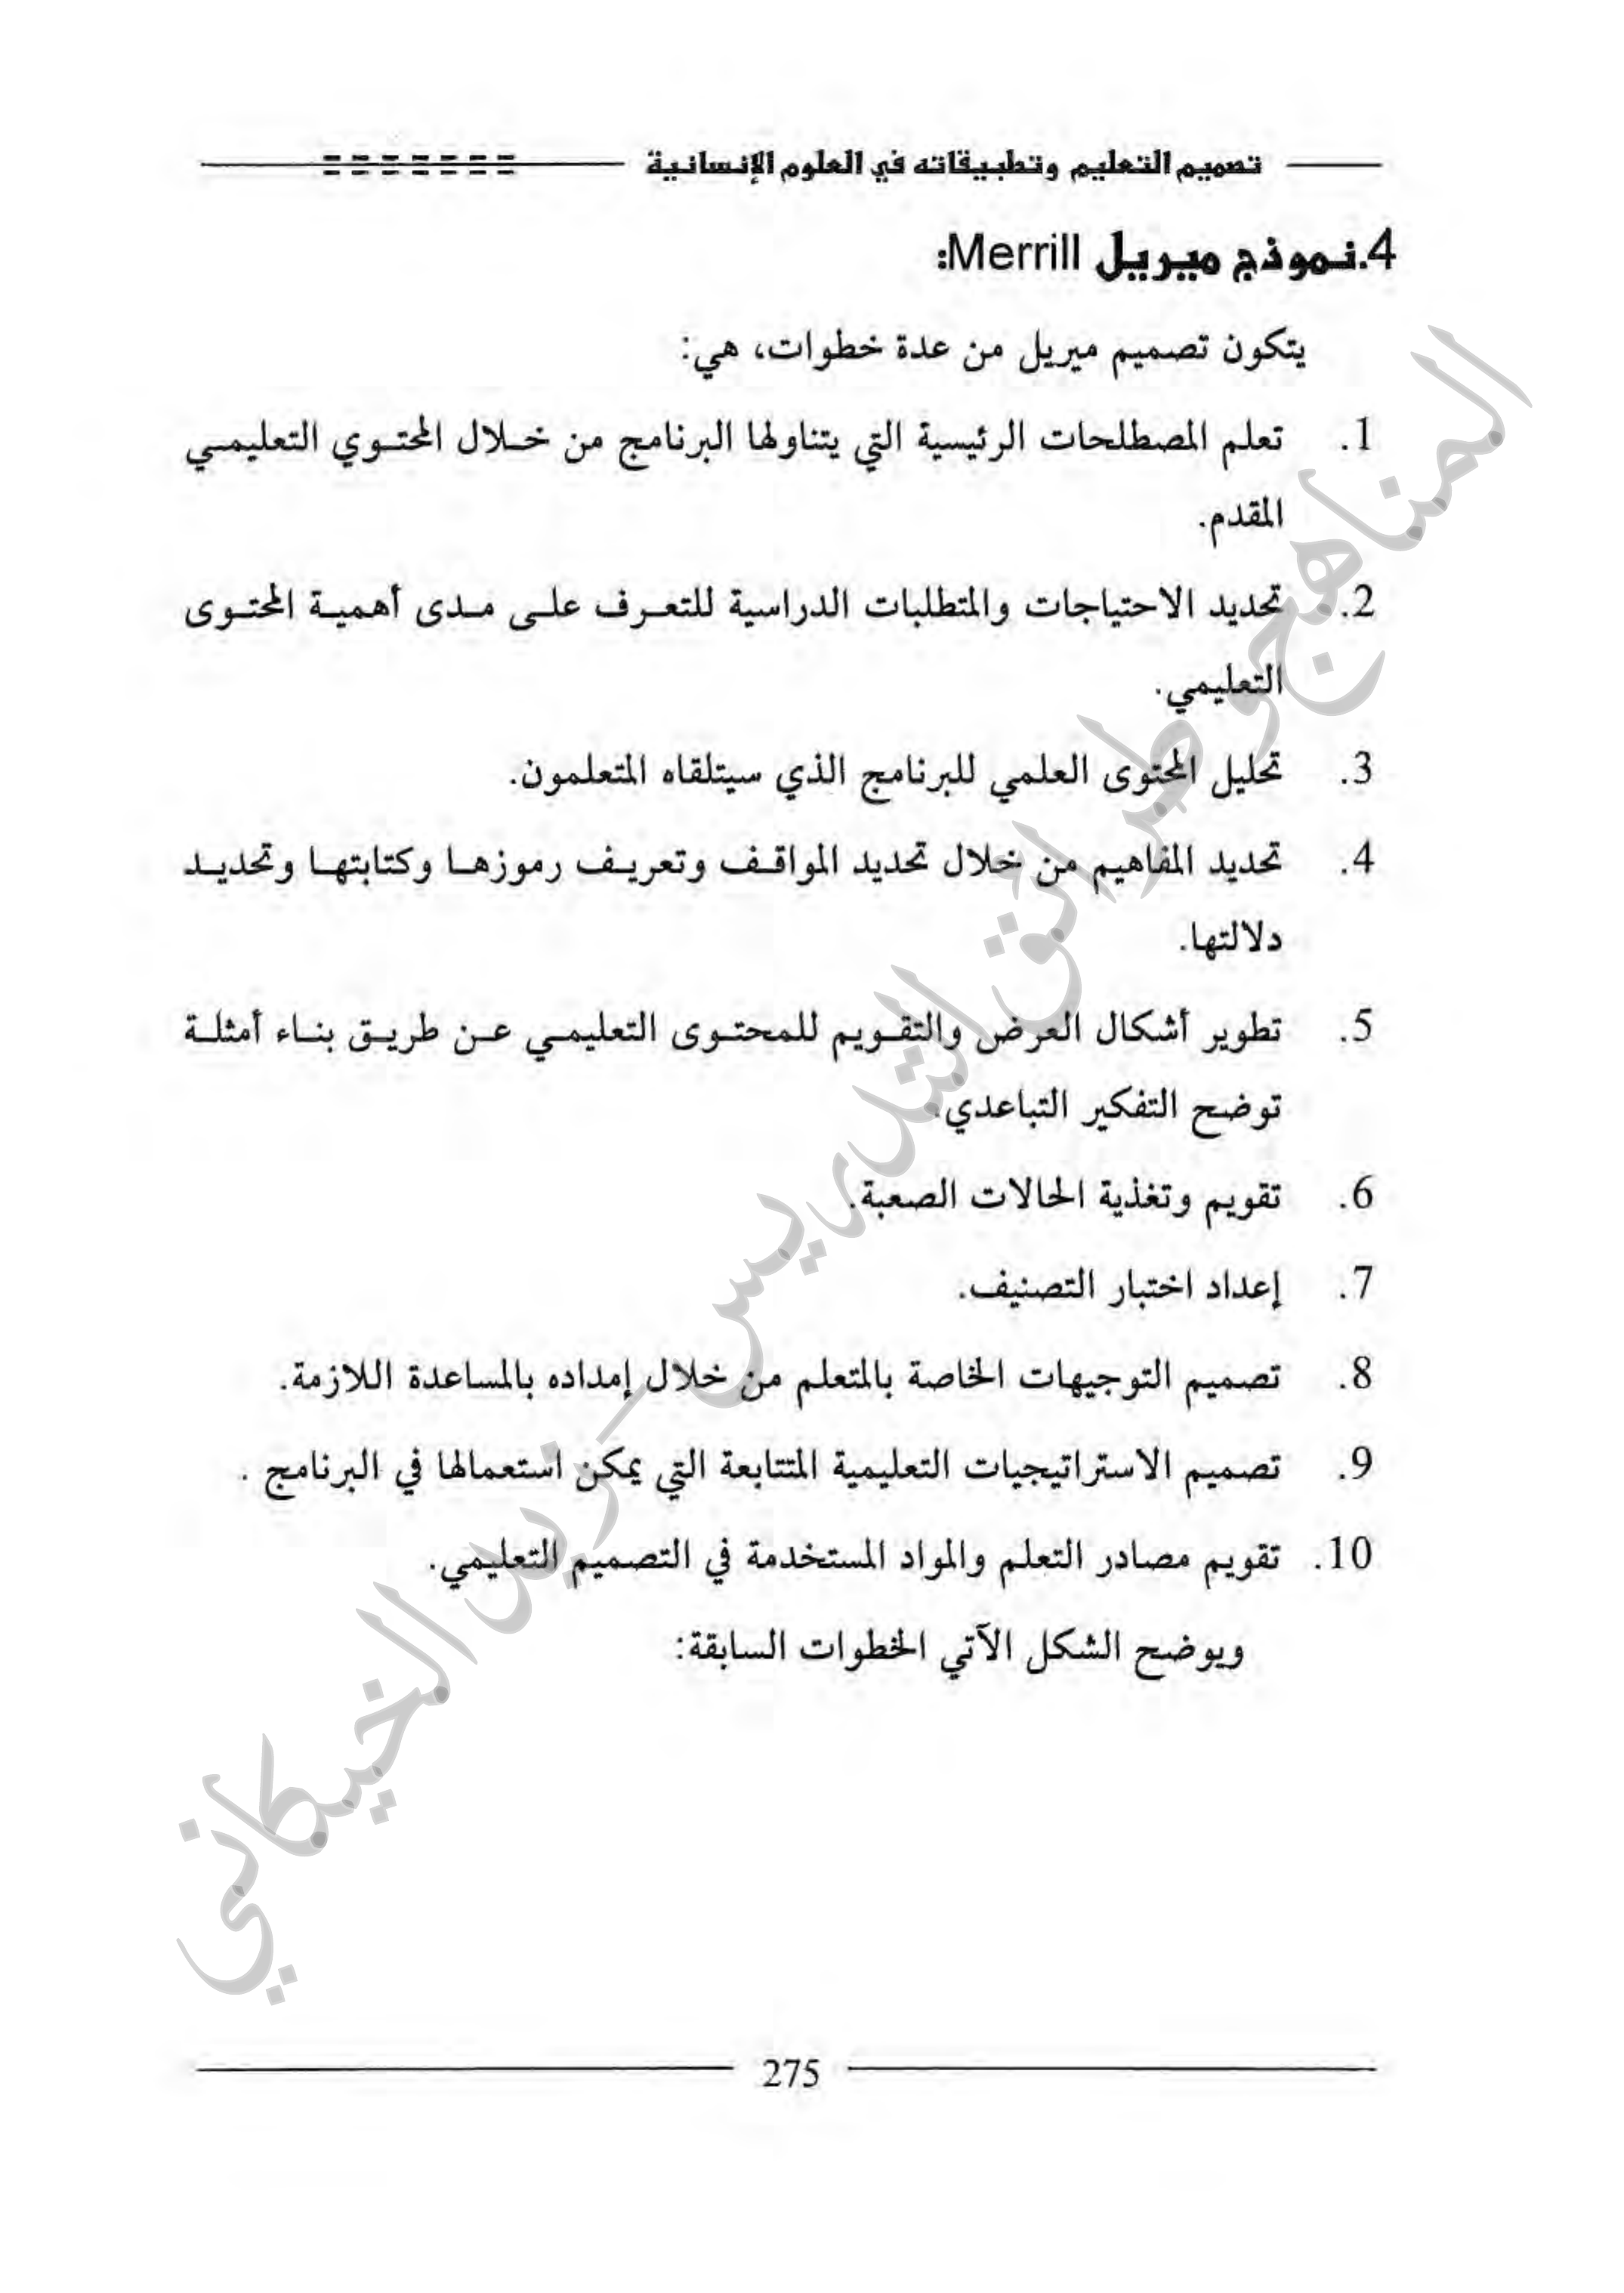 تصميم التعليم وتطبيقاته في العلوم الإنسانية
4.نموذج ميريل Merrill:
يتكون تصميم ميريل من عدة خطوات، هي:
1. تعلم المصطلحات الرئيسية التي يتناولها البرنامج من خلال المحتوي التعليمي
المقدم.
2. تحديد الاحتياجات والمتطلبات الدراسية للتعرف على مدى أهمية المحتوى
التعليمي.
3. تحليل المحتوى العلمي للبرنامج الذي سيتلقاه المتعلمون.
4. تحديد المفاهيم من خلال تحديد المواقف وتعريف رموزها وكتابتها وتحديد
دلالتها.
5. تطوير أشكال العرض والتقويم للمحتوى التعليمي عن طريق بناء أمثلة
توضح التفكير التباعدي.
6. تقويم وتغذية الحالات الصعبة.
7. إعداد اختبار التصنيف.
8. تصميم التوجيهات الخاصة بالمتعلم من خلال إمداده بالمساعدة اللازمة.
9. تصميم الاستراتيجيات التعليمية المتتابعة التي يمكن استعمالها في البرنامج .
10. تقويم مصادر التعلم والمواد المستخدمة في التصميم التعليمي.
ويوضح الشكل الآتي الخطوات السابقة:
المناهج وطرائق التدريس - زيد الخيكاني
275